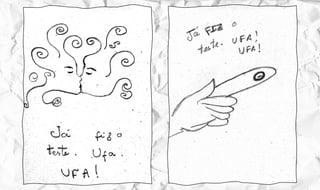 Já fiz o
teste. Ufa.
UFA!
Já fiz o
teste. UFA!
UFA!